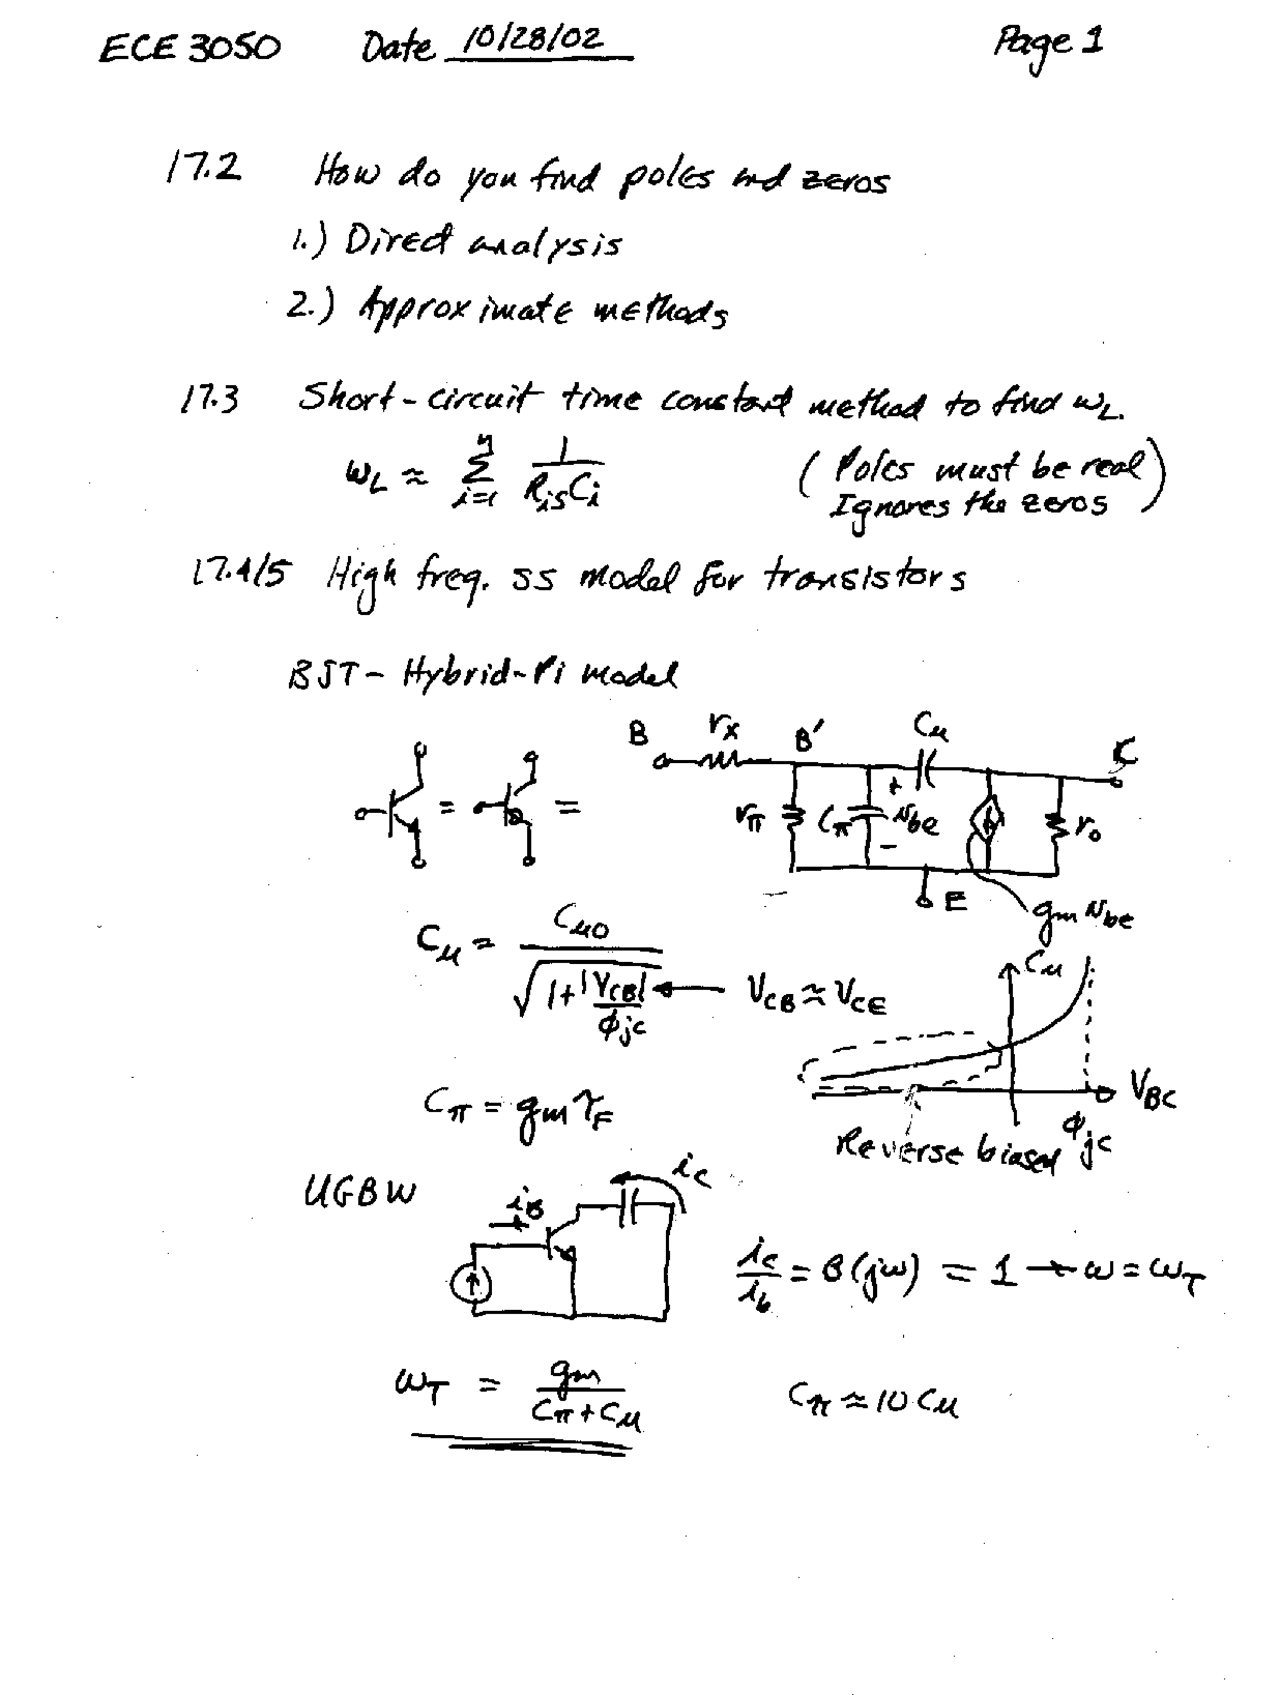 ECE 3050 Date 10/28/02 Page 1
17.2 How do you find poles and zeros
1.) Direct analysis
2.) Approximate methods
17.3 Short-circuit time constant method to find ωL.
ωL ≈ Σ_{i=1}^{n} 1/(RisCi) (Poles must be real
Ignores the zeros)
17.4/5 High freq. ss model for transistors
BJT - Hybrid-Pi model
B rx B' Cμ C
= = rπ Cπ + vbe - ro
E gm vbe
Cμ = Cμo/√(1+|VCB|/φjc) ← VCB ≈ VCE
Cμ
VBC
φjc
Reverse biased
Cπ = gm τF
UGBW iB iC
ic/ib = β(jω) = 1 → ω = ωT
ωT = gm/(Cπ+Cμ) Cπ ≈ 10 Cμ